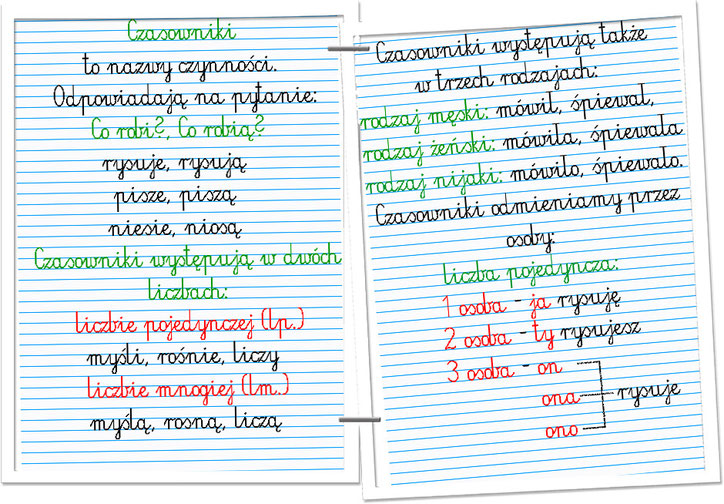 Czasowniki
to nazwy czynności.
Odpowiadają na pytanie:
Co robi?, Co robią?
rysuje, rysują
pisze, piszą
niesie, niosą
Czasowniki występują w dwóch
liczbach:
liczbie pojedynczej (lp.)
myśli, rośnie, liczy
liczbie mnogiej (lm.)
myślą, rosną, liczą
Czasowniki występują także
w trzech rodzajach:
rodzaj męski: mówił, śpiewał,
rodzaj żeński: mówiła, śpiewała
rodzaj nijaki: mówiło, śpiewało.
Czasowniki odmieniamy przez
osoby:
liczba pojedyncza:
1 osoba - ja rysuję
2 osoba - ty rysujesz
3 osoba - on
ona rysuje
ono